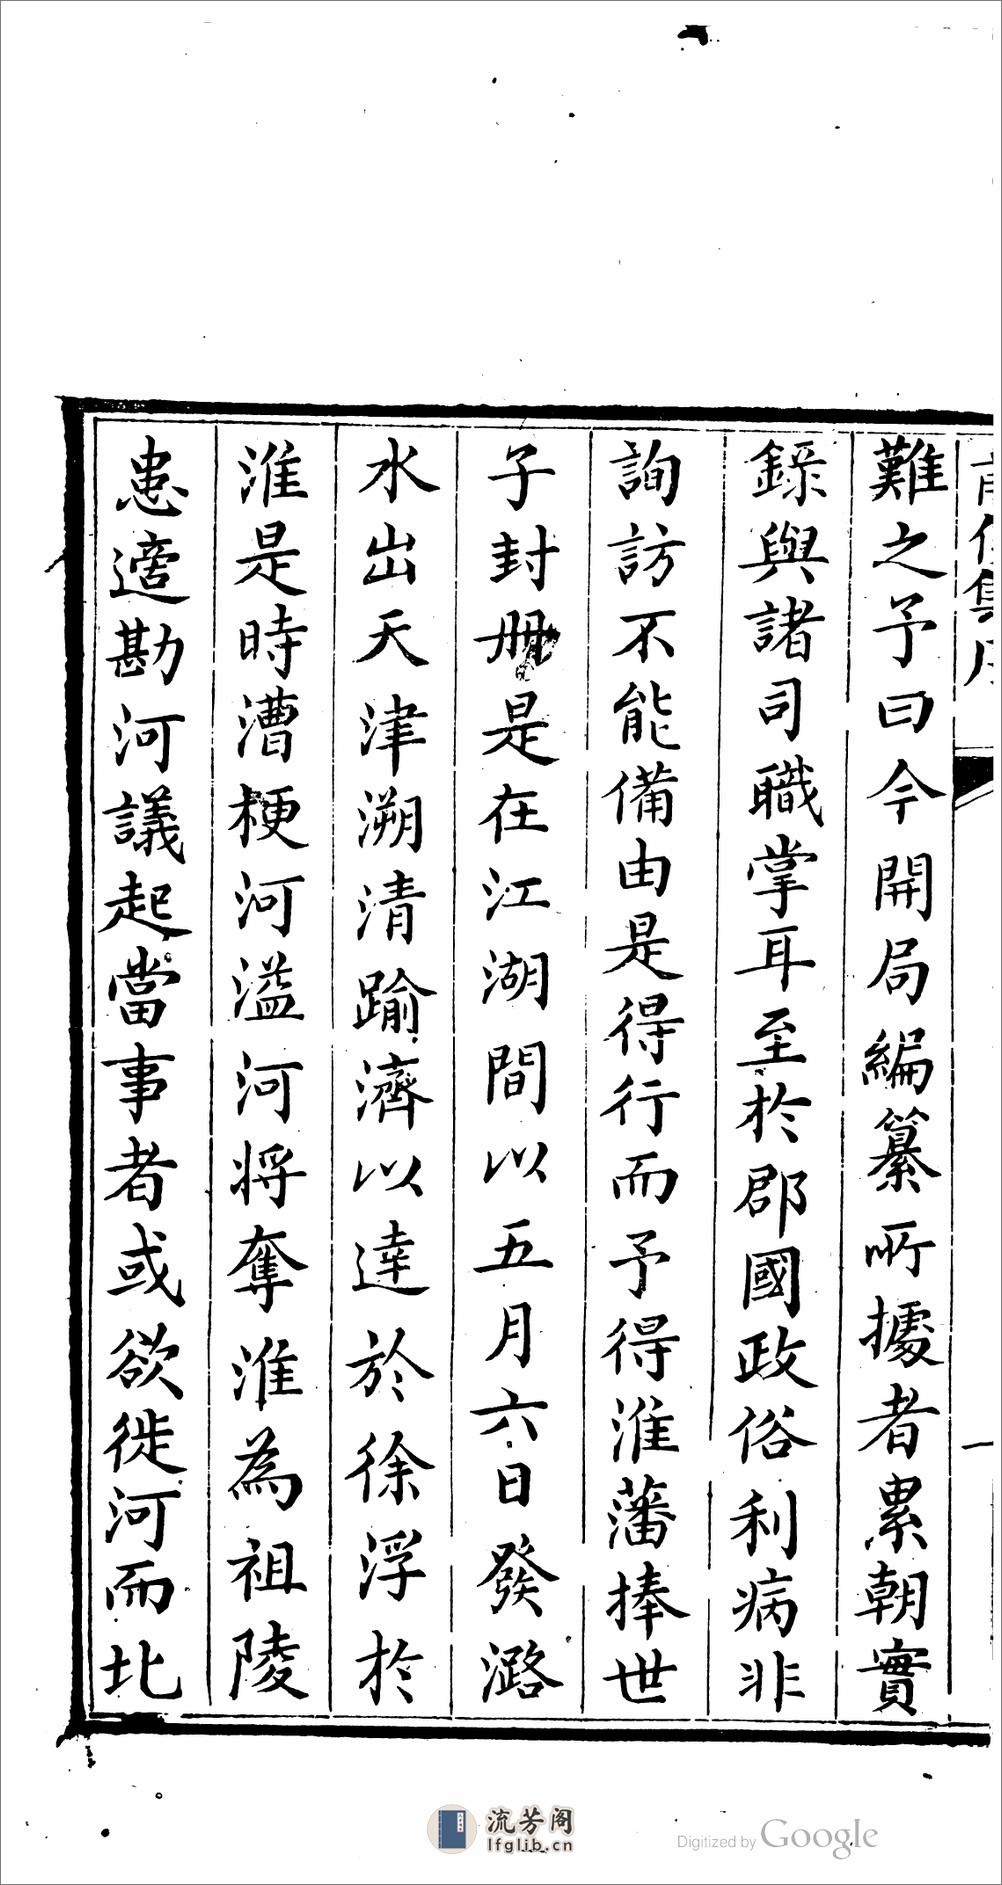 難之予曰今開局編纂所據者累朝實
錄與諸司職掌耳至於郡國政俗利病非
詢訪不能備由是得行而予得淮藩捧世
子封冊是在江湖間以五月六日發潞
水出天津溯清踰濟以達於徐浮於
淮是時漕梗河溢河將奪淮為祖陵
患適勘河議起當事者或欲徙河而北
一
流芳阁
lfglib.cn
Digitized by Google